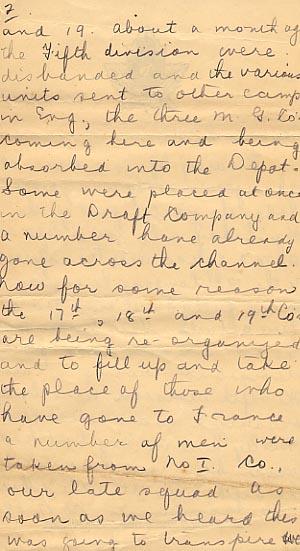 2.
and 19. about a month ago
the Fifth division were
disbanded and the various
units sent to other camps
in Eng, the three M. G. Co's
coming here and being
absorbed into the Depot.
Some were placed at once
in the Draft Company and
a number have already
gone across the channel.
now for some reason
the 17th, 18th and 19th Co's
are being re-organized
and to fill up and take
the place of those who
have gone to France
a number of men were
taken from No I. Co.,
our late squad as
soon as we heard this
was going to transpire we